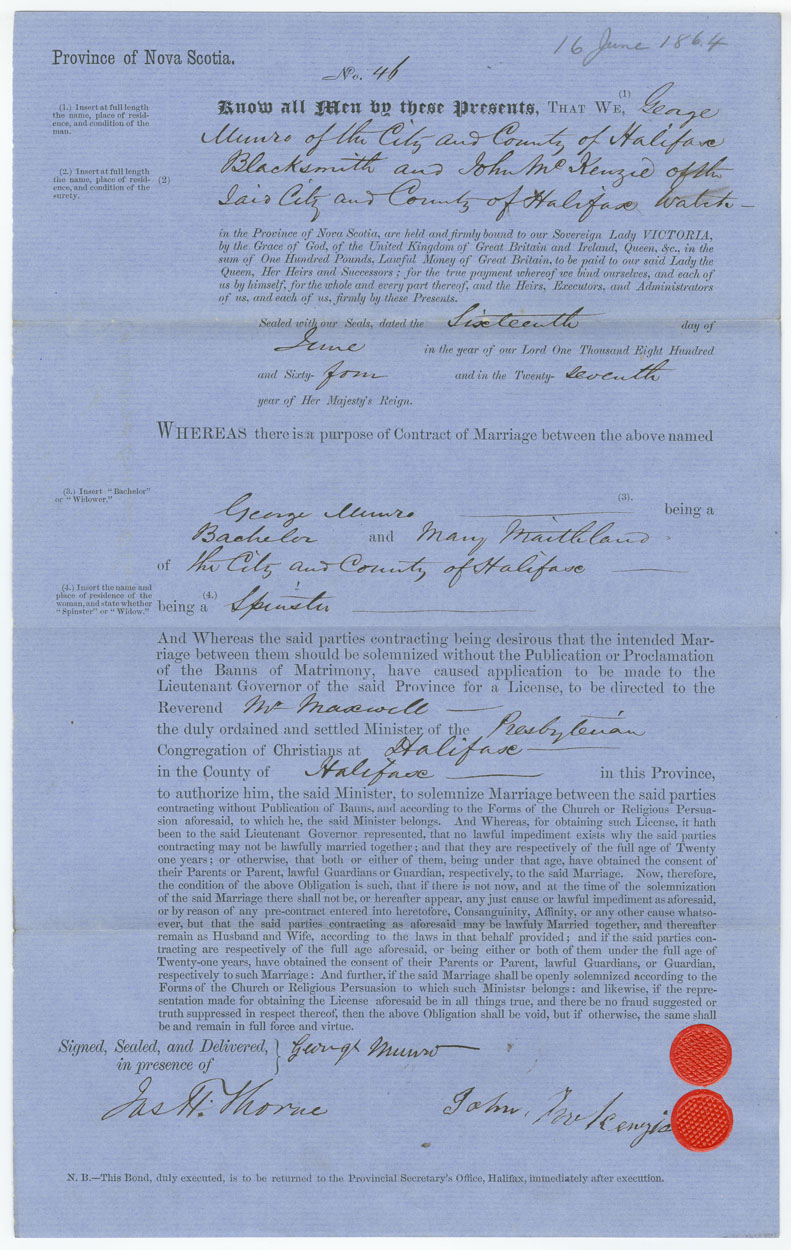 16 June 1864
Province of Nova Scotia.
No. 46
(1.) Insert at full length
the name, place of resid-
ence, and condition of the
man.
(2.) Insert at full length
the name, place of resid-
ence, and condition of the
surety.
(1)
Know all Men by these Presents, THAT WE, George
Munro of the City and County of Halifax
(2) Blacksmith and John McKenzie of the
Said City and County of Halifax Watch-
in the Province of Nova Scotia, are held and firmly bound to our Sovereign Lady VICTORIA,
by the Grace of God, of the United Kingdom of Great Britain and Ireland, Queen, &c., in the
sum of One Hundred Pounds, Lawful Money of Great Britain, to be paid to our said Lady the
Queen, Her Heirs and Successors; for the true payment whereof we bind ourselves, and each of
us by himself, for the whole and every part thereof, and the Heirs, Executors, and Administrators
of us, and each of us, firmly by these Presents.
Sealed with our Seals, dated the Sixteenth day of
June in the year of our Lord One Thousand Eight Hundred
and Sixty- four and in the Twenty- seventh
year of Her Majesty's Reign.
WHEREAS there is a purpose of Contract of Marriage between the above named
(3.) Insert "Bachelor"
or "Widower."
(3).
George Munro being a
Bachelor and Mary Maithland
of the City and County of Halifax
(4.) Insert the name and
place of residence of the
woman, and state whether
"Spinster" or "Widow."
(4.)
being a Spinster
And Whereas the said parties contracting being desirous that the intended Mar-
riage between them should be solemnized without the Publication or Proclamation
of the Banns of Matrimony, have caused application to be made to the
Lieutenant Governor of the said Province for a License, to be directed to the
Reverend Mr Maxwell
the duly ordained and settled Minister of the Presbyterian
Congregation of Christians at Halifax
in the County of Halifax in this Province,
to authorize him, the said Minister, to solemnize Marriage between the said parties
contracting without Publication of Banns, and according to the Forms of the Church or Religious Persua-
sion aforesaid, to which he, the said Minister belongs. And Whereas, for obtaining such License, it hath
been to the said Lieutenant Governor represented, that no lawful impediment exists why the said parties
contracting may not be lawfully married together; and that they are respectively of the full age of Twenty
one years; or otherwise, that both or either of them, being under that age, have obtained the consent of
their Parents or Parent, lawful Guardians or Guardian, respectively, to the said Marriage. Now, therefore,
the condition of the above Obligation is such, that if there is not now, and at the time of the solemnization
of the said Marriage there shall not be, or hereafter appear, any just cause or lawful impediment as aforesaid,
or by reason of any pre-contract entered into heretofore, Consanguinity, Affinity, or any other cause whatso-
ever, but that the said parties contracting as aforesaid may be lawfuly Married together, and thereafter
remain as Husband and Wife, according to the laws in that behalf provided; and if the said parties con-
tracting are respectively of the full age aforesaid, or being either or both of them under the full age of
Twenty-one years, have obtained the consent of their Parents or Parent, lawful Guardians, or Guardian,
respectively to such Marriage: And further, if the said Marriage shall be openly solemnized according to the
Forms of the Church or Religious Persuasion to which such Ministsr belongs: and likewise, if the repre-
sentation made for obtaining the License aforesaid be in all things true, and there be no fraud suggested or
truth suppressed in respect thereof, then the above Obligation shall be void, but if otherwise, the same shall
be and remain in full force and virtue.
Signed, Sealed, and Delivered, } George Munro
in presence of
Jas H. Thorne John McKenzie
N. B.—This Bond, duly executed, is to be returned to the Provincial Secretary's Office, Halifax, immediately after execution.